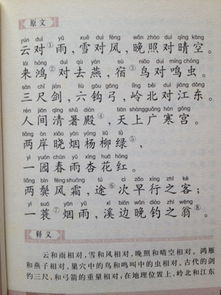 原文
yún duì yǔ xuě duì fēng wǎn zhào duì qíng kōng
云对①雨,雪对风,晚照对晴空。
lái hóng duì qù yàn sù niǎo duì míng chóng
来鸿②对去燕,宿③鸟对鸣虫。
sān chǐ jiàn liù jūn gōng lǐng běi duì jiāng dōng
三尺剑,六钧弓,岭北对江东。
rén jiān qīng shǔ diàn tiān shàng guǎng hán gōng
人间清暑殿,天上广寒宫。
liǎng àn xiǎo yān yáng liǔ lǜ
两岸晓烟杨柳绿,
yì yuán chūn yǔ xìng huā hóng
一园春雨杏花红。
liǎng bìn fēng shuāng tú cì zǎo xíng zhī kè
两鬓风霜,途次早行之客;
yì suō yān yǔ xī biān wǎn diào zhī wēng
一蓑烟雨,溪边晚钓之翁。
释义
云和雨相对,雪和风相对,晚照和晴空相对。鸿雁
和燕子相对,巢穴中的鸟和鸣叫中的虫相对。古代的剑
约三尺,和弓箭的重量相对,在地理位置上,岭北和江东